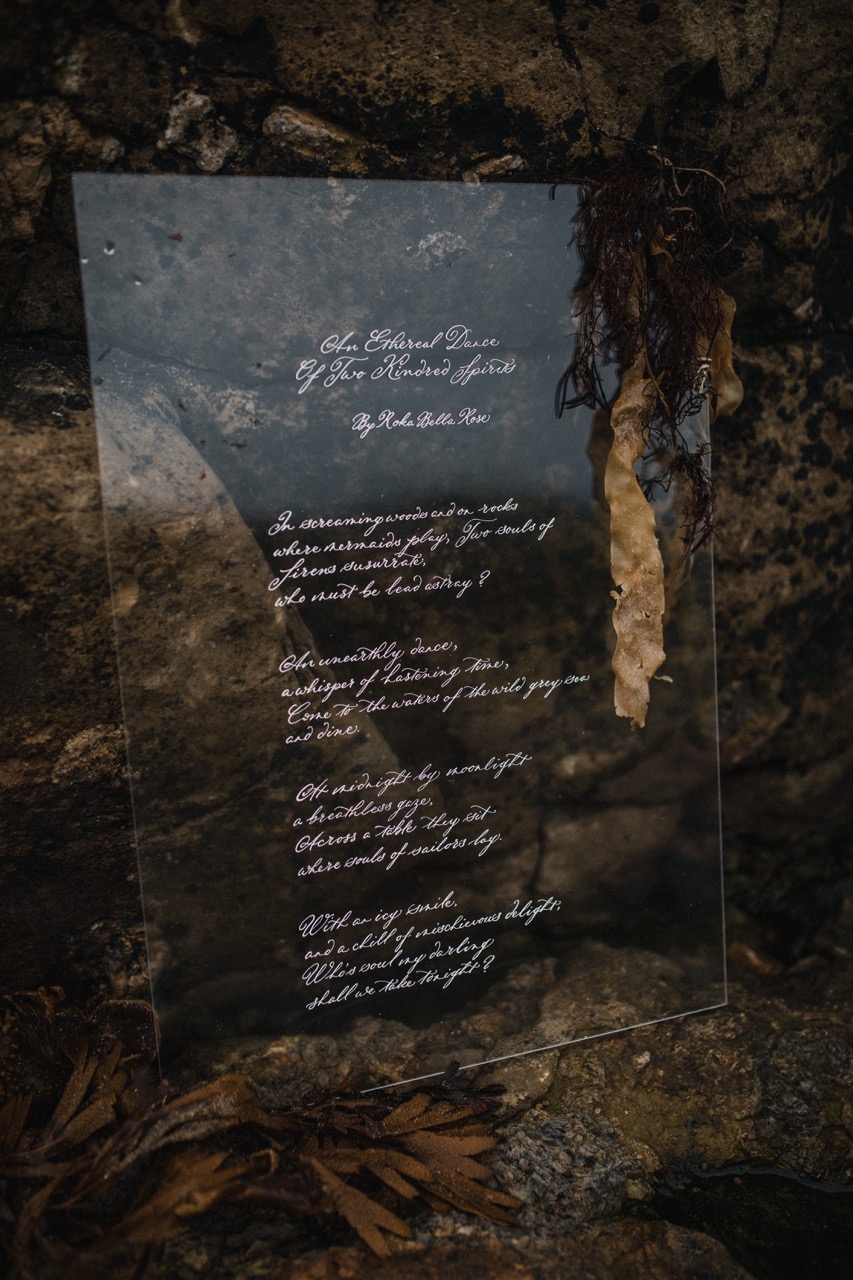 An Ethereal Dance
Of Two Kindred Spirits
By Roka Bella Rose
In screaming woods and on rocks
where mermaids play, Two souls of
Sirens susurrate,
who must be lead astray ?
An unearthly dance,
a whisper of hastening time,
Come to the waters of the wild grey sea
and dine.
At midnight by moonlight
a breathless gaze,
Across a table they sit
where souls of sailors lay.
With an icy smile,
and a chill of mischievous delight;
Who's soul my darling
shall we take tonight ?